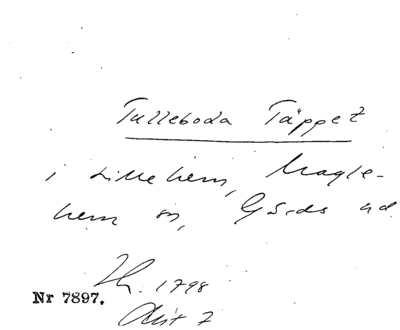 Tulleboda Täppet
i Lillehem, Magle-
hem sn, Gärds hd
Th. 1798
Nr 7897.
Akt 7